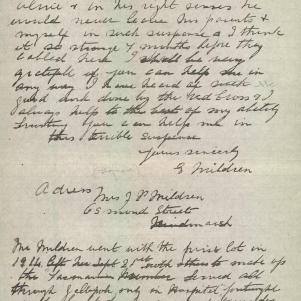 alive & in his right senses he
would never leave his parents &
myself in such suspense & I think
it so strange 7 months before they
cabled here I shall be very
grateful if you can help me in
any way I have heard of such
good work done by the Red Cross & I
always help to the best of my ability
trusting you can help me in
this terrible suspense
Yours sincerely
E Mildren
Adress Mrs J P Mildren
Esmond Street
Hindmarsh
Mr Mildren went with the first lot in
1914 left here Sept 21st to make up
the Tasmanian served all
through Gallipoli only in Hospital fortnight